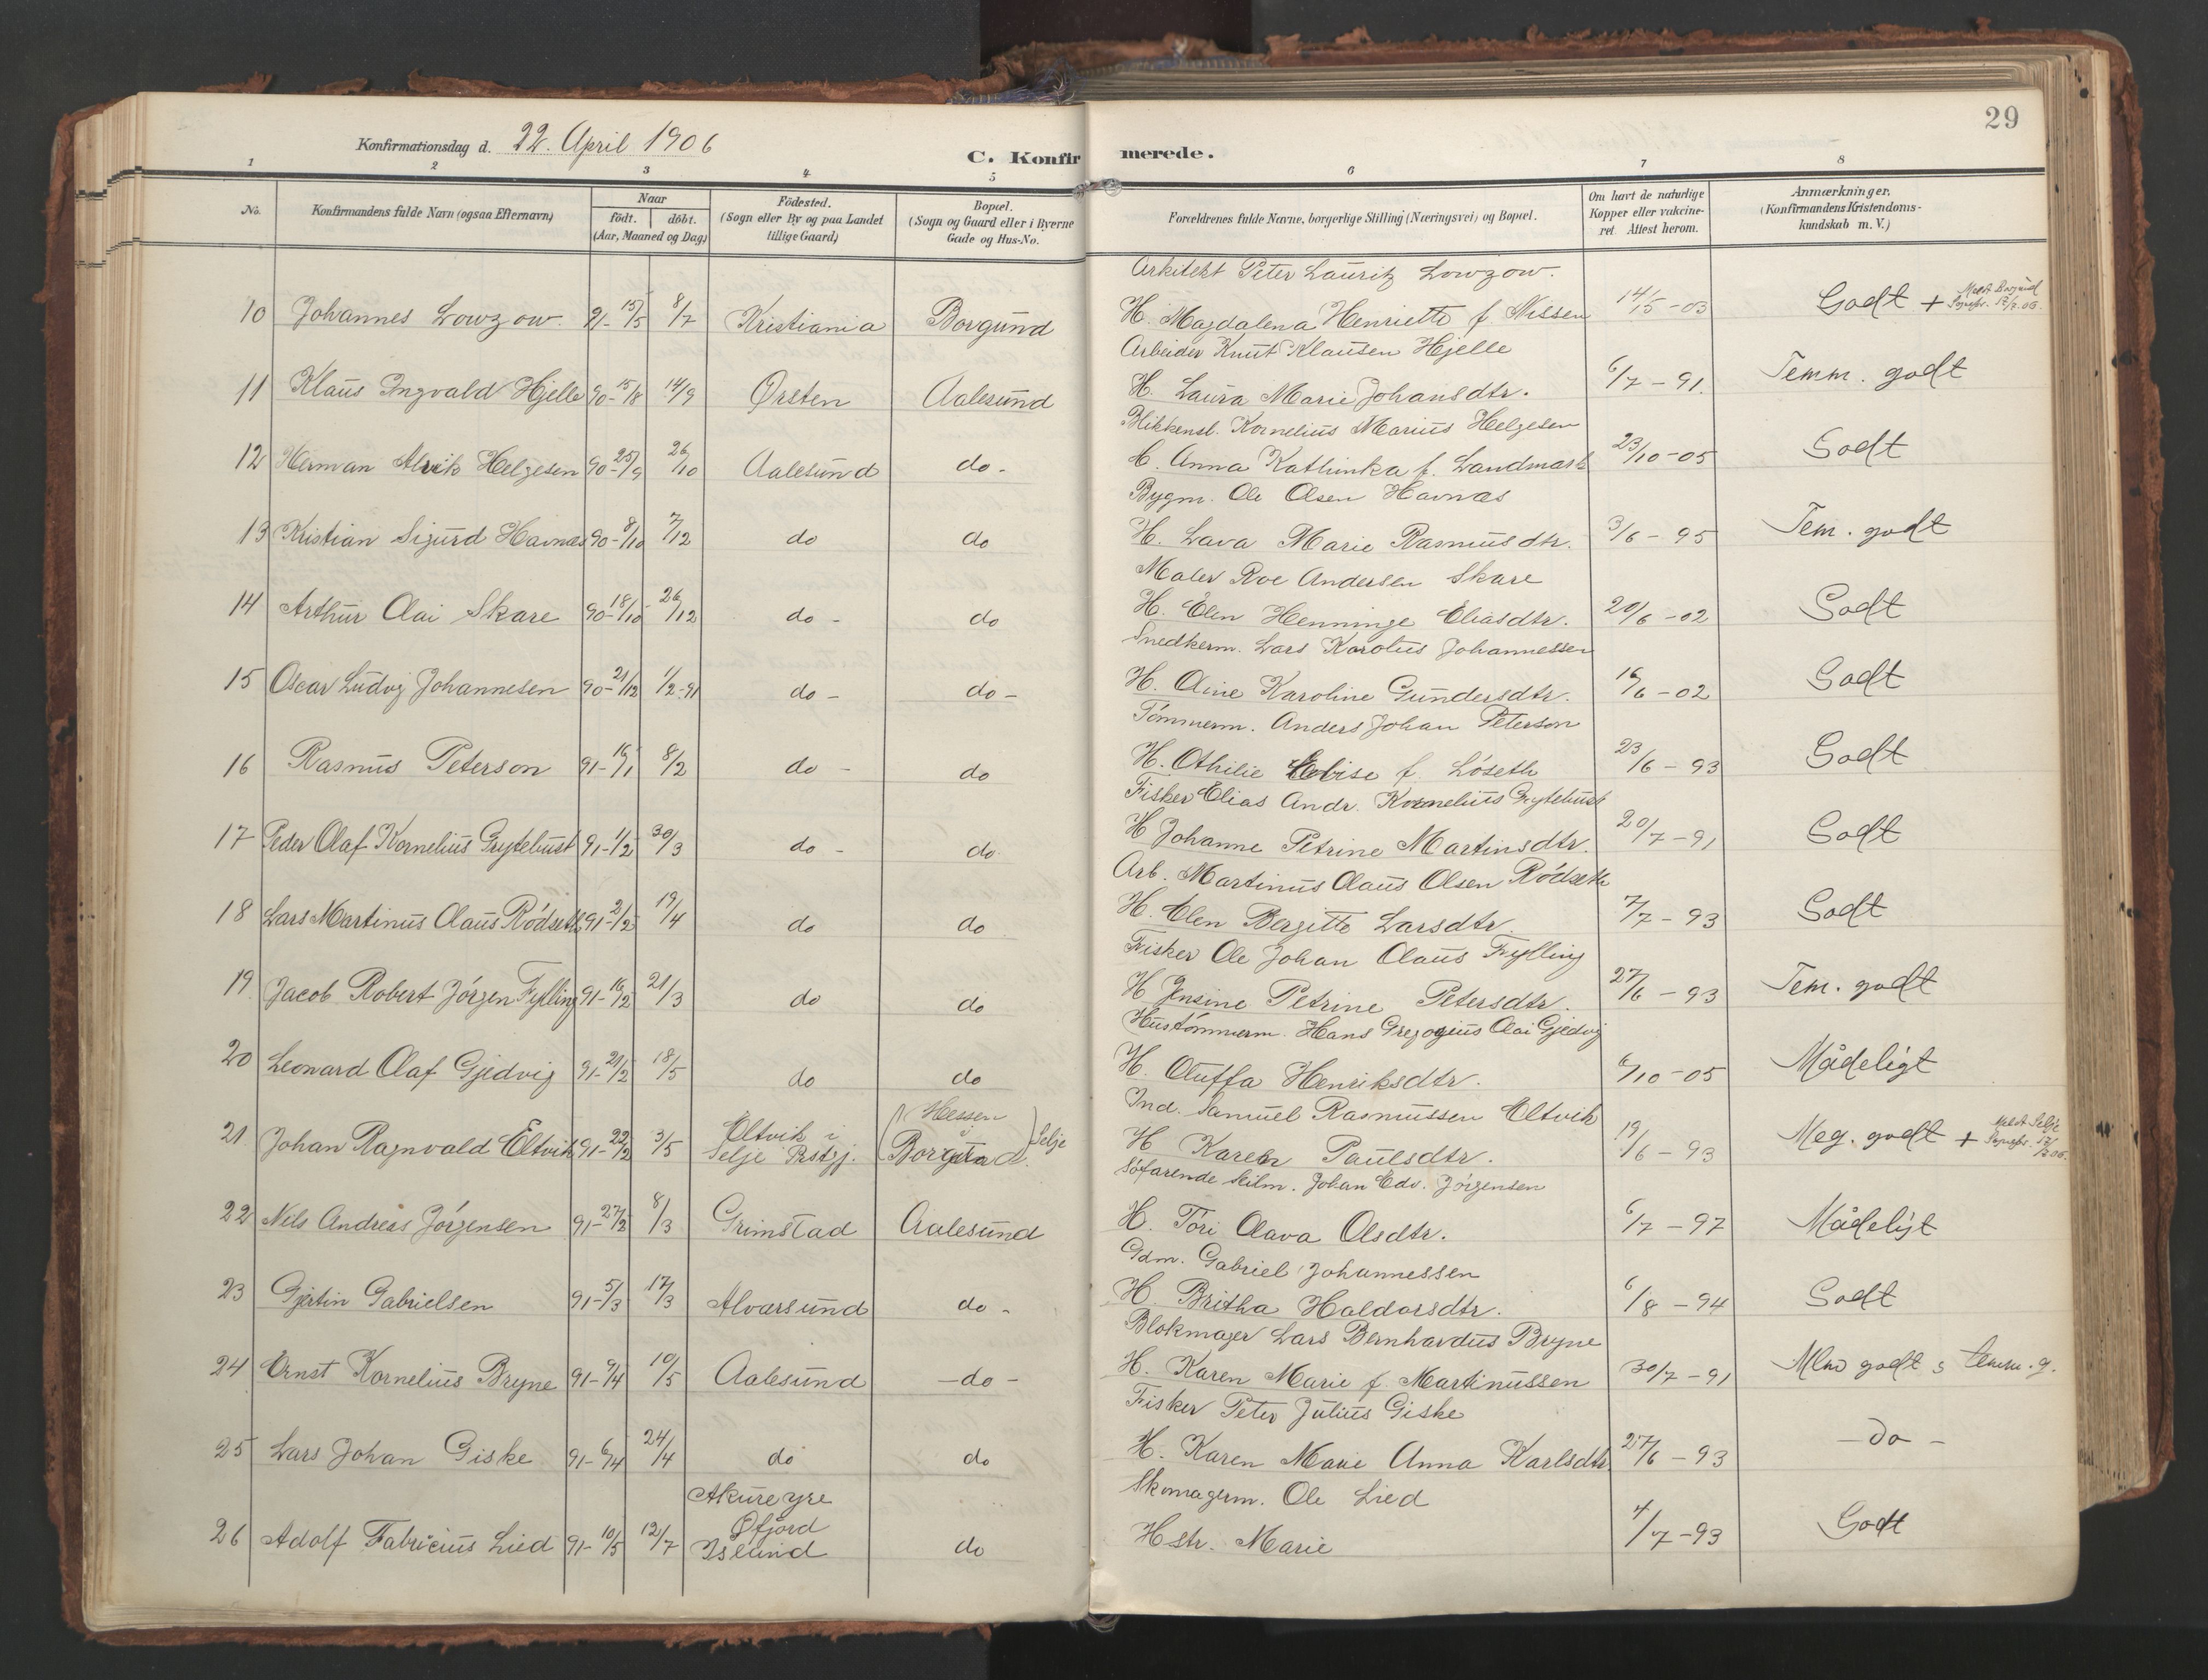 29
Konfirmationsdag d. 22. April 1906
C. Konfirmerede.
1 2 3 4 5 6 7 8
No.
Konfirmandens fulde Navn (ogsaa Efternavn)
Naar
födt. döbt.
(Aar, Maaned og Dag)
Födested.
(Sogn eller By og paa Landet
tillige Gaard)
Bopæl.
(Sogn og Gaard eller i Byerne
Gade og Hus-No.
Forældrenes fulde Navne, borgerlige Stilling (Næringsvei) og Bopæl.
Om havt de naturlige
Kopper eller vakcine-
ret Attest herom.
Anmærkninger.
(Konfirmandens Kristendoms-
kundskab m. V.)
Arkitekt Peter Lauritz Lowzow.
10 Johannes Lowzow 91-15/5 8/7 Kristiania Borgund H. Magdalena Henriette f. Nissen 14/5-03 Godt + Meldt Borgund
Sognepr. 12/3.06.
Arbeider Knut Klausen Hjelle
11 Klaus Ingvald Hjelle 90-15/8 14/9 Ørsten Aalesund H. Laura Marie Johansdtr. 6/7-91. Temm. godt
Blikkensl. Kornelius Marius Helgesen
12 Herman Alvik Helgesen 90-25/9 26/10 Aalesund do- H. Anna Kathinka f. Landmark 23/10-05 Godt
Bygm. Ole Olsen Havnæs
13 Kristian Sigurd Havnæs 90-8/10 7/12 do do H. Lava Marie Rasmusdtr. 3/6-95 Tem. godt
Maler Roe Andersen Skare
14 Arthur Olai Skare 90-18/10 26/12 do- do H. Elen Henninge Eliasdtr. 20/6-02 Godt
Snedkerm. Lars Karolus Johannessen
15 Oscar Ludvig Johannesen 90-21/12 1/2-91 do- do- H. Oline Karoline Gundersdtr. 16/6-02 Godt
Tömmerm. Anders Johan Peterson
16 Rasmus Peterson 91-16/1 8/2 do- do H. Othilie Elise f. Löseth 23/6-93 Godt
Fisker Elias Andr. Kornelius Grytebust
17 Peder Olaf Kornelius Grytebust 91-1/2 30/3 do- do H Johanne Petrine Martinsdtr. 20/7-91 Godt
Arb. Martinus Olaus Olsen Rödseth
18 Lars Martinus Olaus Rödseth 91-2/2 19/4 do do H. Elen Bergitte Larsdtr. 7/7-93 Godt
Fisker Ole Johan Olaus Fylling
19 Jacob Robert Jörgen Fylling 91-16/2 21/3 do do H Jensine Petrine Petersdtr. 27/6-93 Tem. godt
Hustömmerm. Hans Gregorius Olai Gjedvig
20 Leonard Olaf Gjedvig 91-21/2 18/5 do do H. Oluffa Henriksdtr. 6/10-05 Mådeligt
Ind. Samuel Rasmussen Eltvik
21 Johan Ragnvald Eltvik 91-22/2 3/5 Eltvik i
Selje Prstgj. (Hessen
i
Borgund.) Selje H Karen Paulsdtr. 19/6-93 Meg. godt + Meldt Selje
Sognepr. 12/3.06.
Söfarende Seilm. Johan Edv. Jörgensen
22 Nils Andreas Jörgensen 91-27/2 8/3 Grimstad Aalesund H. Tori Olava Olsdtr. 6/7-97 Mådeligt
Gdm. Gabriel Johannessen
23 Gjertin Gabrielsen 91-5/3 17/3 Alversund do- H Britha Haldorsdtr. 6/8-94 Godt
Blokmager Lars Bernhardus Bryne
24 Ernst Kornelius Bryne 91-9/4 10/5 Aalesund -do- H. Karen Marie f. Martinussen 30/7-91 Mlm godt & temm. g.
Fisker Peter Julius Giske
25 Lars Johan Giske 91-6/4 24/4 do do H. Karen Marie Anna Karlsdtr. 27/6-93 -do-
Skomagerm. Ole Lied
26 Adolf Fabricius Lied 91-10/5 12/7 Akureyre
Øfjord
Island do Hstr. Marie 4/7-93 Godt